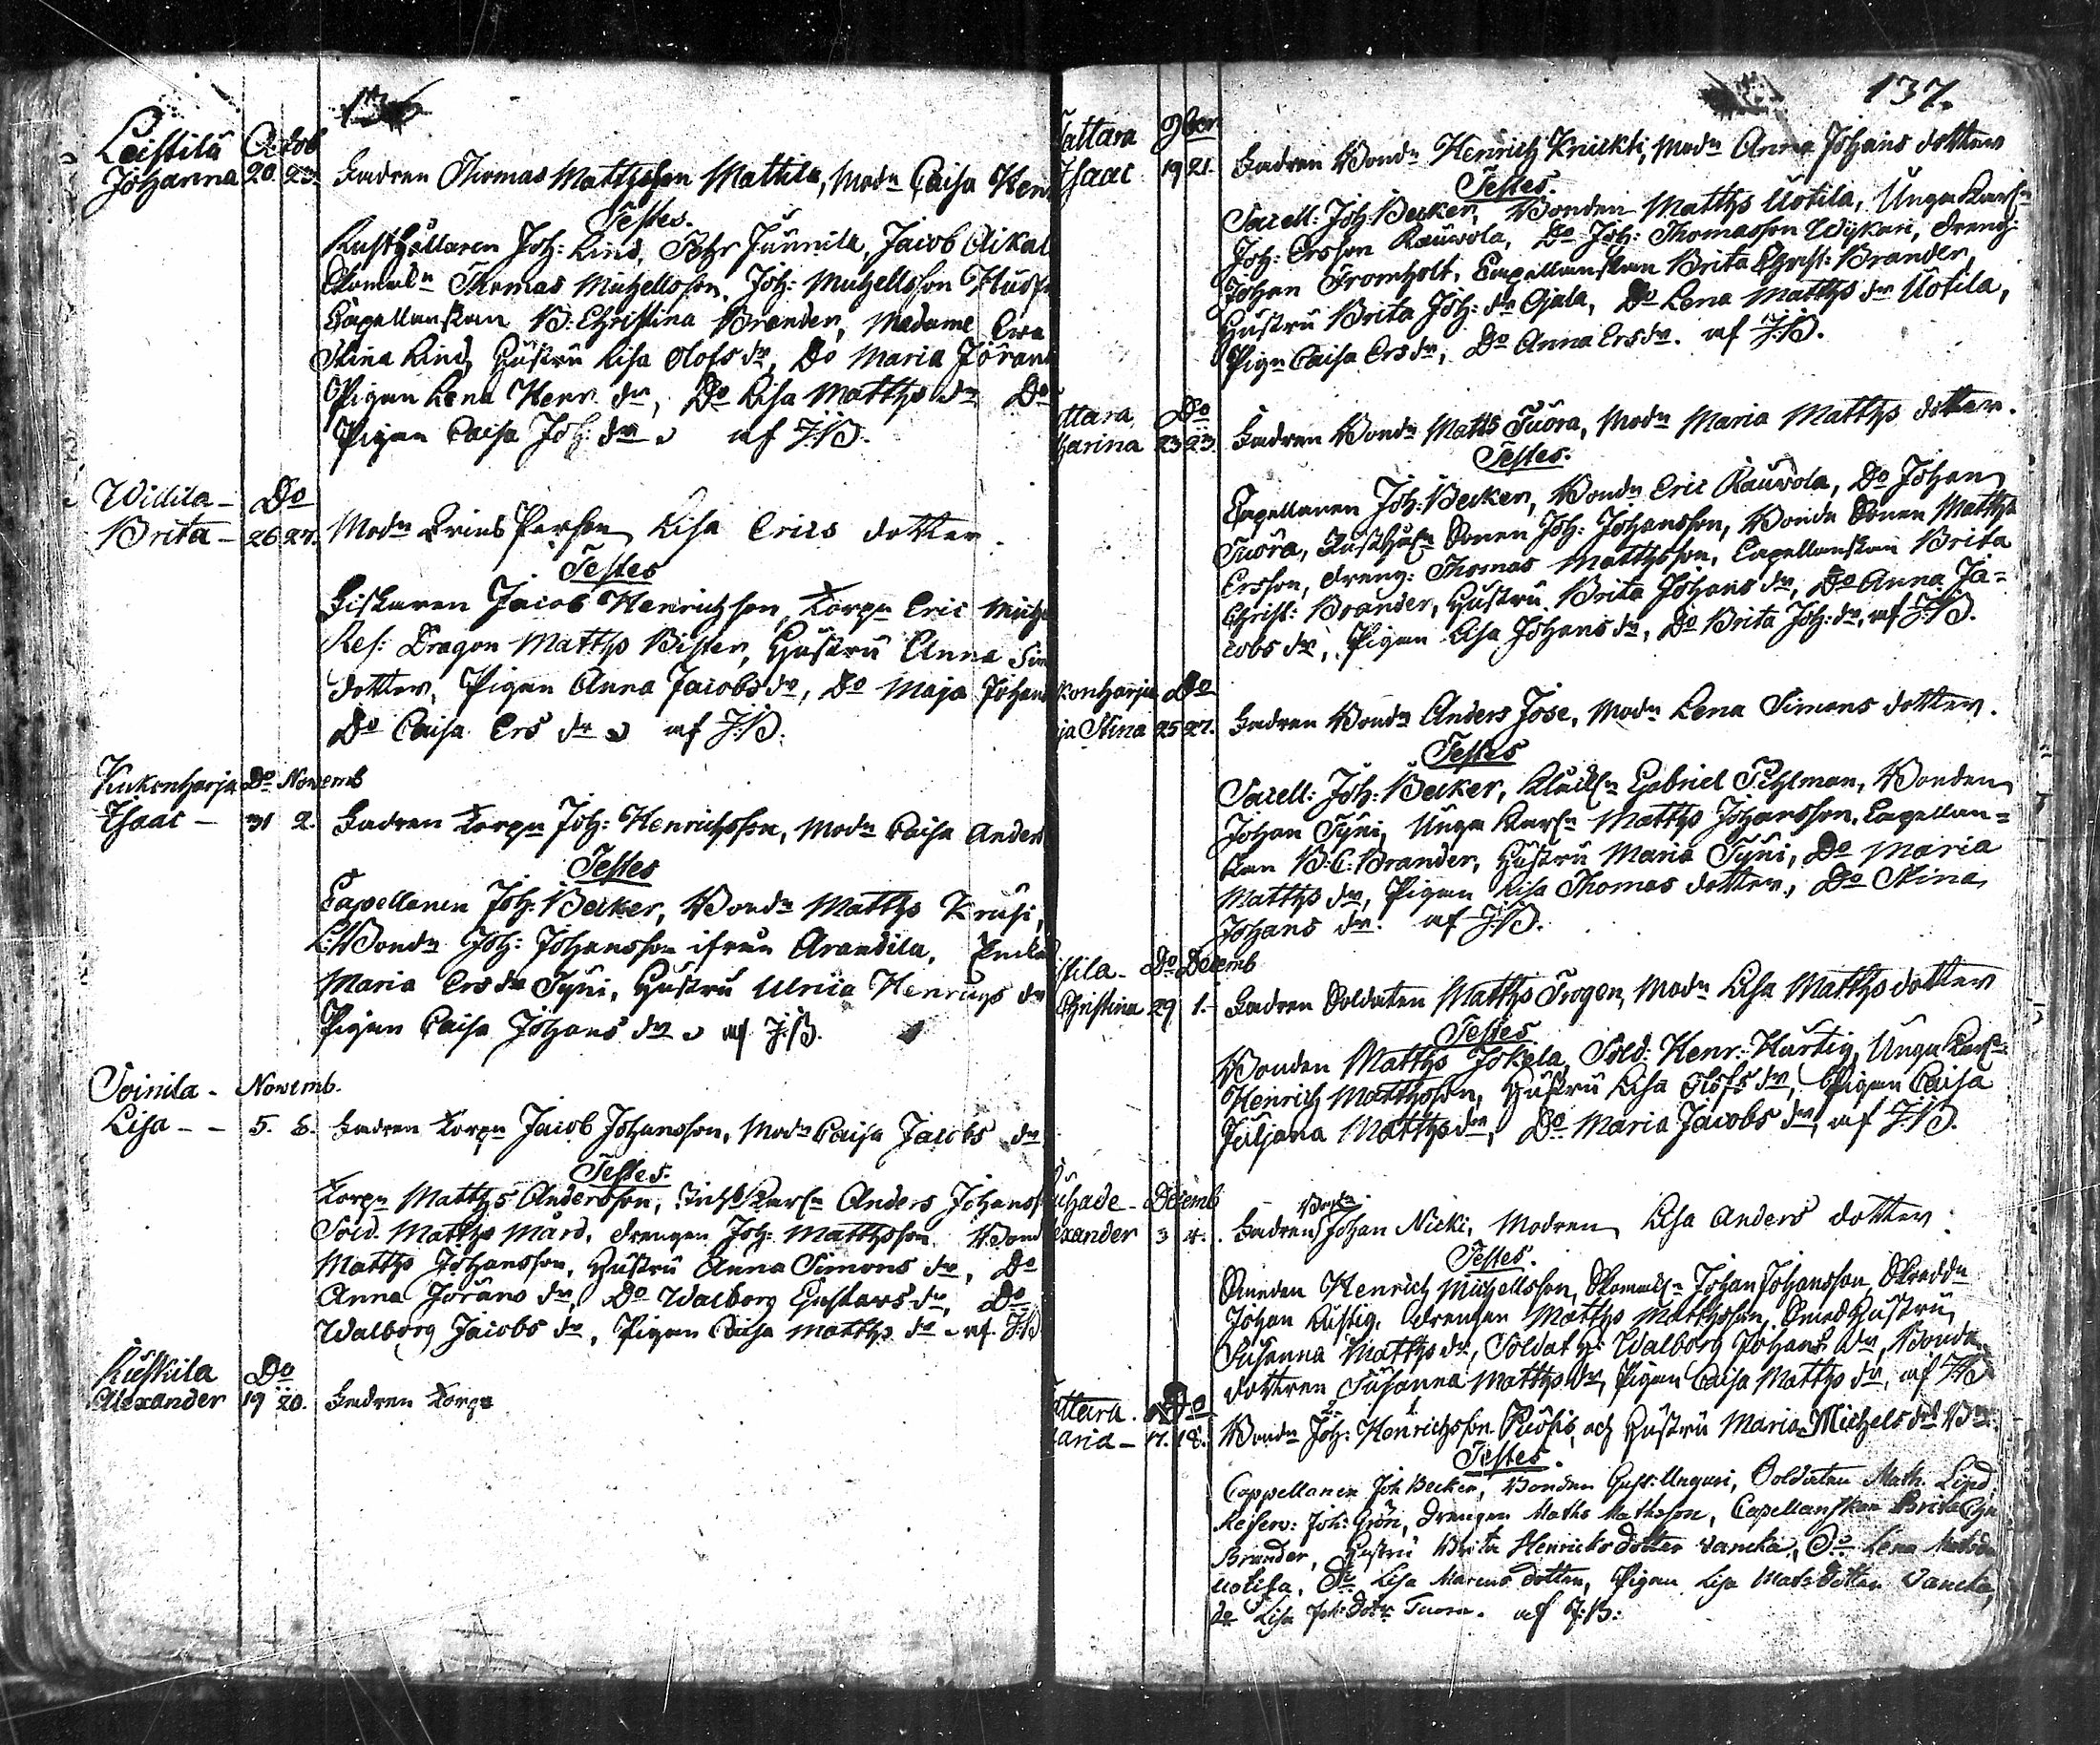 136
Leistila Octob
Johanna 20. 23. Fadren Thomas Matthsson Mattila, Modn Caisa Hen
Testes.
Rusthållaren Joh: Lind, Petter Junnila, Jacob Aikal
Skomakn Thomas Michellsson, Joh: Michellsson Husf
Capellanskan B: Christina Brander, Madame Ewa
Stina Lind, Hustru Lisa Olofs dr, Do Maria Jörans
Pigan Lena Henr. dr, Do Lisa Matths dr Do
Pigan Caisa Joh: dr af J:B.
Willila - Do
Brita - 26 27. Modn Lisa Erics dotter.
Testes
Fiskaren Jacob Henrichson, Torpn Eric Mich
Res: Dragon Matths Bister, Hustru Anna Sim
dotter, Pigan Anna Jacobs dr, Do Maja Johans
Do Caisa Ers dr af J:B.
Kukonharja Do Novemb
Isaac - 31 2. Fadren Torpn Joh: Henrichsson, Modn Caisa Anders
Testes
Capellanen Joh: Becker, Bondn Matths Krusi,
Bondn Joh: Johansson ifrån Arandila, Enka
Maria Ersdr Tyni, Hustru Ulrica Henrichs dr
Pigan Caisa Johans dr af J:B.
Soinila - Novemb.
Lisa - - 5. 8. Fadren Torpn Jacob Johansson, Modn Caisa Jacobs dr
Testes.
Torpn Matths Andersson, Anders Johanss
Sold. Matths Mård, drengen Joh: Matthsson Bond
Matths Johansson, Hustru Anna Simons dr, Do
Anna Jörans dr, Do Walborg Gustavs dr, Do
Walborg Jacobs dr, Pigan Caisa Matths dr af J:B
Kuskila Do
Alexander 19 20. Fadren Torpn
137.
Tattara 9ber
Isaac 19 21. Fadren Bondn Henrich Knickti, Modn Anna Johans dotter
Testes.
Sacell: Joh: Becker, Bonden Matths Uotila, Unga Karln
Joh: Ersson Rauvola, Do Joh: Thomasson Wiykari, dreng:
Johan Fromholt, Capellanskan Brita Christ: Brander,
Hustru Brita Joh: dr Ojala, Do Lena Matths dr Uotila,
Pign Caisa Ers dr, Do Anna Ersdr. af J:B.
ttara Do
tharina 23 23. Fadren Bondn Matts Tuora, Modn Maria Matths dotter.
Testes.
Capellanen Joh: Becker, Bondn Eric Rauvola, Do Johan
Tuora, Rusth: Sonen Joh: Johansson, Bonde Sonen Matths
Ersson, dreng: Thomas Matthsson, Capellanskan Brita
Christ: Brander, Hustru Brita Johans dr, Do Anna Ja=
cobs dr, Pigan Lisa Johans dr, Do Brita Joh: dr, af J:B.
konharja Do
ja Stina 25 27. Fadren Bondn Anders Jose, Modn Lena Simons dotter.
Testes
Sacell: Joh: Becker, Klockn Gabriel Pihlman, Bonden
Johan Tyni, Unga Karln Matths Johansson, Capellan=
skan B: C: Brander, Hustru Maria Tyni, Do Maria
Matths dr, Pigan Lisa Thomas dotter, Do Stina
Johans dr. af J:B.
stila - Do Decemb
Christina 29 1. Fadren Soldaten Matths Trogen, Modn Lisa Matths dotter
Testes
Bonden Matths Jokela, Sold: Henr: Hurtig, Unga Karln
Henrich Matthsson, Hustru Lisa Olofs dr, Pigan Caisa
Juljana Matthsdr, Do Maria Jacobs dr, af J:B.
uhade - Decemb
exander 3 4. Fadren Johan Nicki, Modren Lisa Anders dotter.
Testes.
Smeden Henrich Michellsson, Skomakn Johan Johansson, Skreddn
Johan Lustig, drengen Matths Matthsson, Smed Hustru
Susanna Matths dr, Soldat H: Walborg Johans dr, Bonde
dottren Susanna Matths dr, Pigan Caisa Matths dr, af J:B
attara. Do
aria - 17. 18. Bondn Joh: Henrichsson Ruohis, och Hustru Maria Michels dr
Testes.
Cappellanen Joh Becker, Bonden Gust: Unguri, Soldaten Math. Lind
Reserv: Joh: Grön, Drengen Maths Mathsson, Capellanskan Brita Chr
Brander, Hustru Brita Henricks dotter Vancka, Do Lena Matsdr
Uotila, Do Lisa Marcus dotter, Pigan Lisa Mats dotter Vancka,
do Lisa Joh: Dotr Tuora. af J:B: